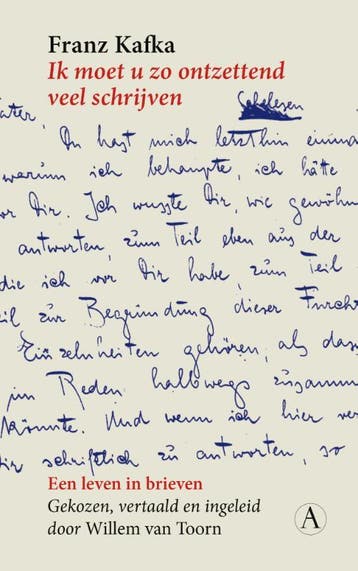 Franz Kafka
Ik moet u zo ontzettend
veel schrijven
Schelesen
ater,
Du hast mich letzthin einma
warum ich behaupte, ich hätte
or Dir. Ich wusste Dir, wie gewöhn
antworten, zum Teil eben aus der
die ich vor Dir habe, zum Teil
eil zur Begründung dieser Furcht
Einzelheiten gehören, als dass
im Reden halbwegs zusamm
könnte. Und wenn ich hier ver
ir schriftlich zu antworten, so
Een leven in brieven
Gekozen, vertaald en ingeleid
door Willem van Toorn
A